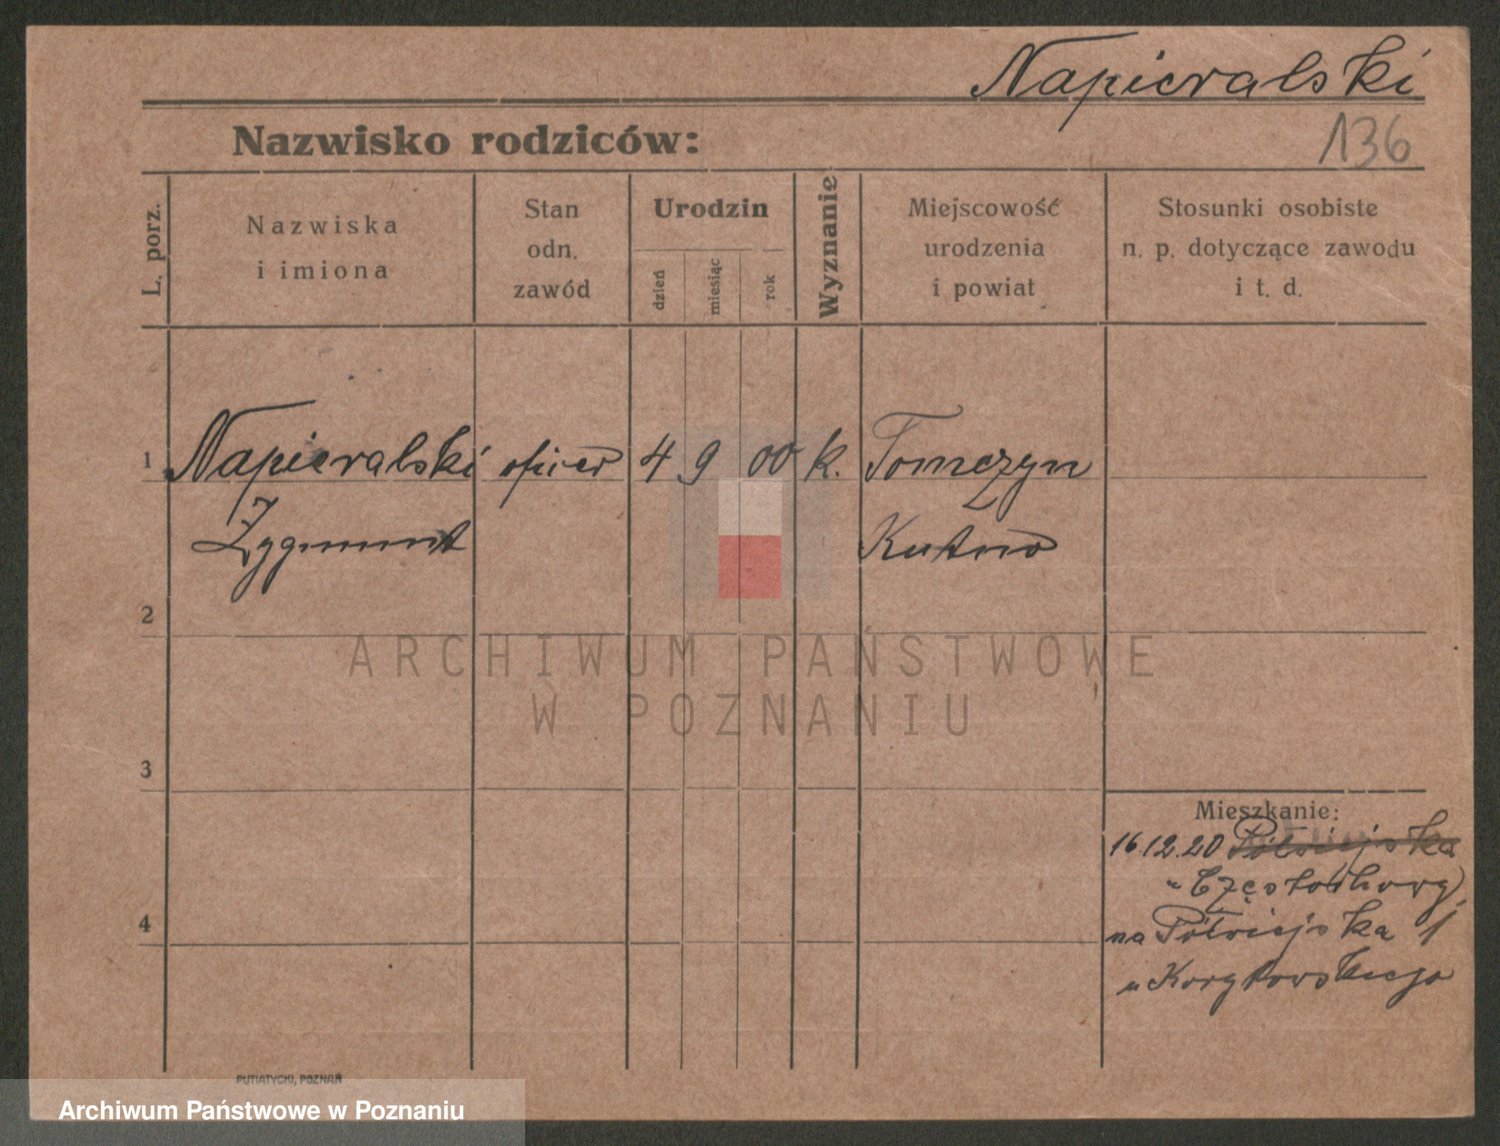 Napieralski
Nazwisko rodziców:
136
L. porz.
Nazwiska
i imiona
Stan
odn.
zawód
Urodzin
dzień
miesiąc
rok
Wyznanie
Miejscowość
urodzenia
i powiat
Stosunki osobiste
n. p. dotyczące zawodu
i t. d.
1 Napieralski oficer 4 9 00 k. Tomczyn
Zygmunt Kutno
2
ARCHIWUM PAŃSTWOWE
W POZNANIU
3
Mieszkanie:
16.12.20 Półwiejska
z Częstochowy
4
na Półwiejska 1
u Korytowskiego
PUTIATYCKI, POZNAŃ
Archiwum Państwowe w Poznaniu